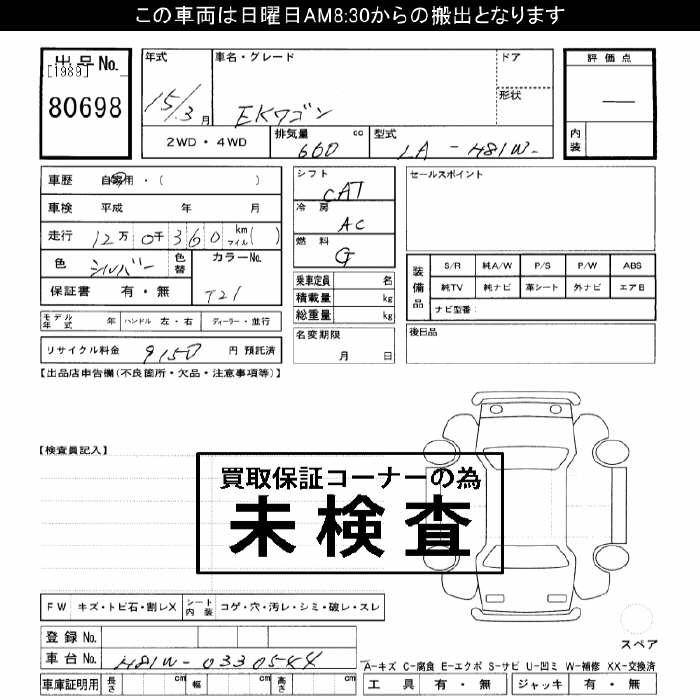 この車両は日曜日AM8:30からの搬出となります
出品No.
[1989]
80698
年式
15/3月
車名・グレード
EKワゴン
ドア
形状
2WD・4WD
排気量 cc
660
型式
LA-H81W-
評価点
―
内装
車歴 自家用・( )
車検 平成 年 月
走行 12万0千360 km マイル( )
色 シルバー 色替
カラーNo.
T21
保証書 有・無
モデル年式 年 ハンドル 左・右 ディーラー・並行
リサイクル料金 9150 円 預託済
シフト
CAT
冷房
AC
燃料
G
乗車定員 名
積載量 kg
総重量 kg
名変期限
月 日
セールスポイント
装備品
S/R 純A/W P/S P/W ABS
純TV 純ナビ 革シート 外ナビ エアB
ナビ型番:
後日品
【出品店申告欄(不良箇所・欠品・注意事項等)】
【検査員記入】
買取保証コーナーの為
未検査
FW キズ・トビ石・割レX シート内装 コゲ・穴・汚レ・シミ・破レ・スレ
登録No.
車台No. H81W-0330544
車庫証明用 長さ cm 幅 cm 高さ cm
スペア
A-キズ C-腐食 E-エクボ S-サビ U-凹ミ W-補修 XX-交換済
工具 有・無 ジャッキ 有・無